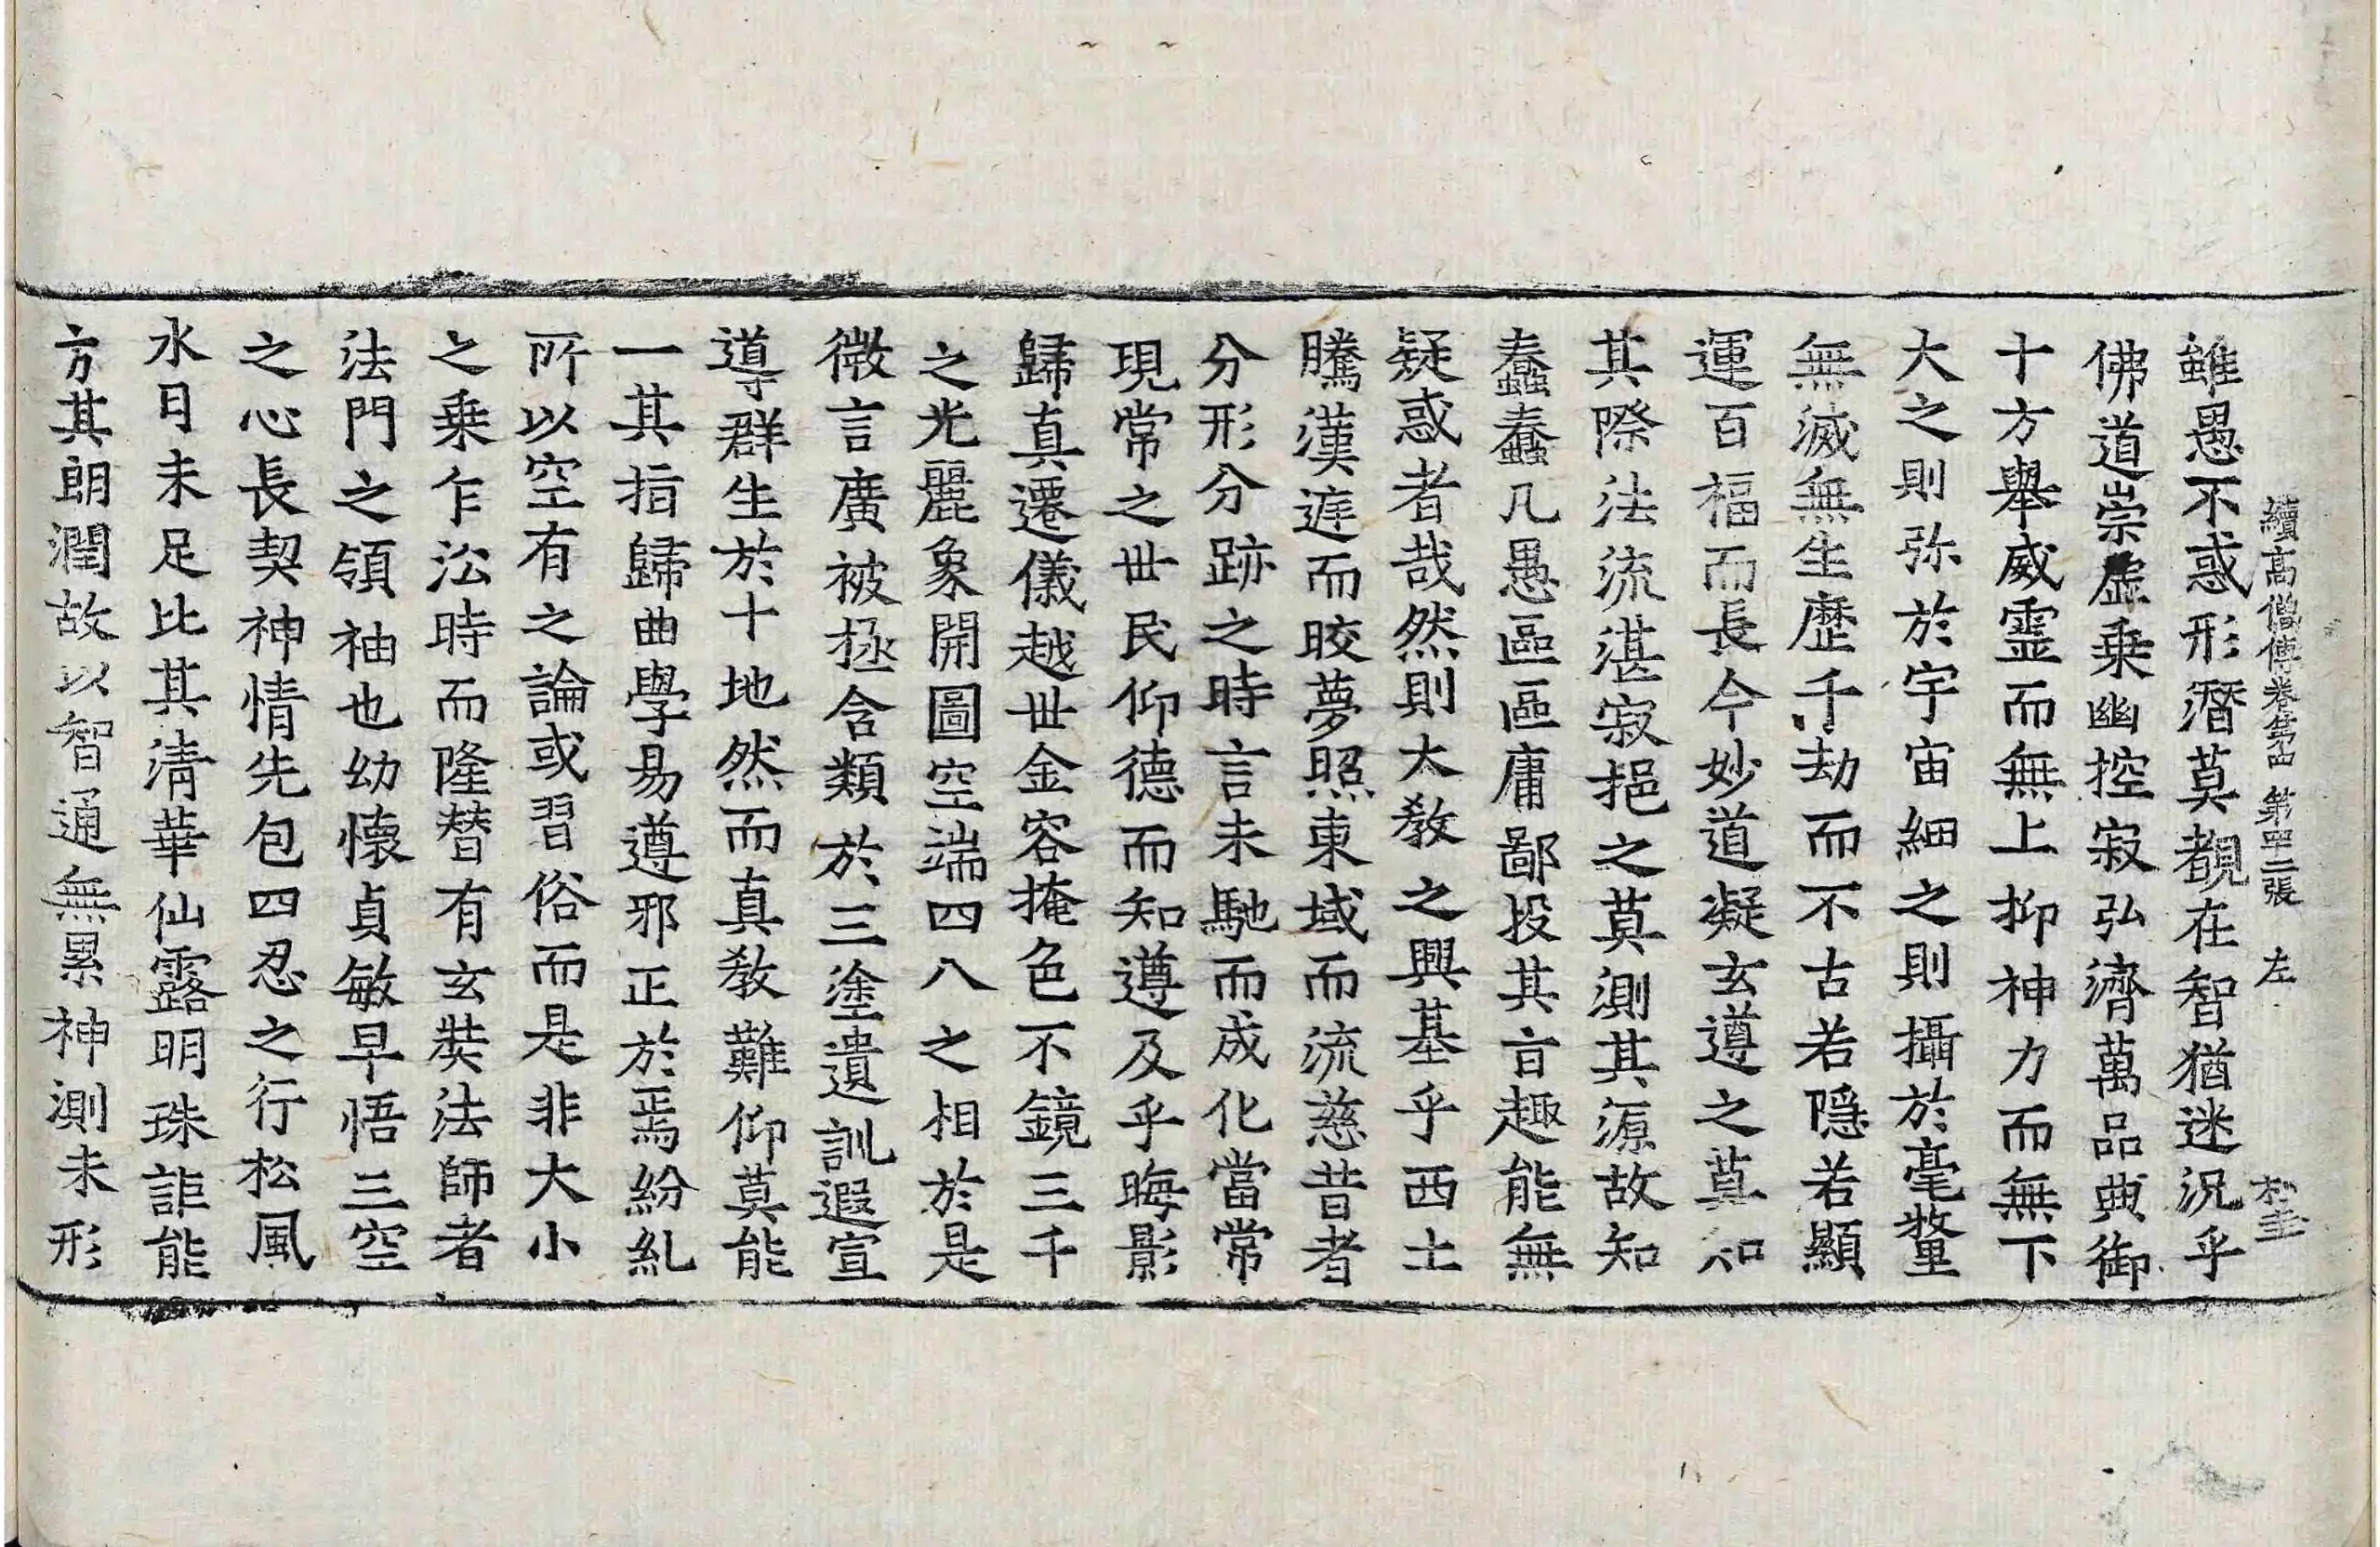 續高僧傳卷第四 第四二張 左
雖愚不惑形潛莫覩在智猶迷況乎
佛道崇虛乗幽控寂弘濟萬品典御
十方舉威靈而無上抑神力而無下
大之則弥於宇宙細之則攝於毫犛
無滅無生歷千劫而不古若隱若顯
運百福而長今妙道凝玄遵之莫知
其際法流湛寂挹之莫測其源故知
蠢蠢凡愚區區庸鄙投其旨趣能無
疑惑者哉然則大教之興基乎西土
騰漢遅而晈夢照東域而流慈昔者
分形分跡之時言未馳而成化當常
現常之世民仰德而知遵及乎晦影
歸真遷儀越世金容掩色不鏡三千
之光麗象開圖空端四八之相於是
微言廣被拯含類於三塗遺訓遐宣
導群生於十地然而真教難仰莫能
一其指歸曲學易遵邪正於焉紛糺
所以空有之論或習俗而是非大小
之乗乍㳂時而隆替有玄奘法師者
法門之領袖也幼懷貞敏早悟三空
之心長契神情先包四忍之行松風
水月未足比其清華仙露明珠詎能
方其朗潤故以智通無累神測未形